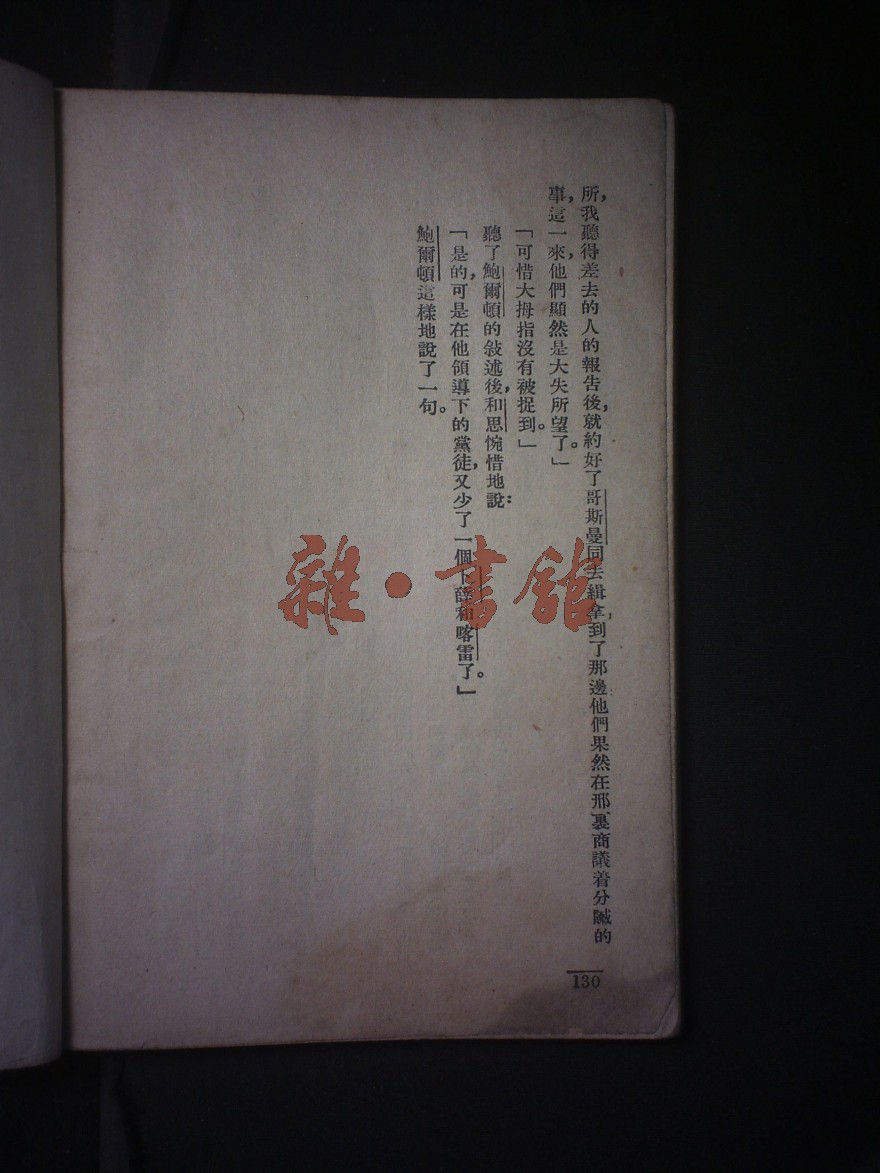 所，我聽得差去的人的報告後，就約好了哥斯曼同去緝拿，到了那邊他們果然在那裏商議着分贓的
事，這一來，他們顯然是大失所望了。」
「可惜大拇指沒有被捉到。」
聽了鮑爾頓的敍述後，和思惋惜地說：
「是的，可是在他領導下的黨徒，又少了一個卞薛和喀雷了。」
鮑爾頓這樣地說了一句。
130
雜·書館